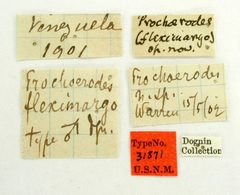 Venezuela
1901
Prochoerodes
(fleximargo)
sp. nov.
Prochoerodes
fleximargo
type ♂ Dgn.
Prochoerodes
n. sp.
Warren 15/5/02
Type No.
31871
U.S.N.M.
Dognin
Collection